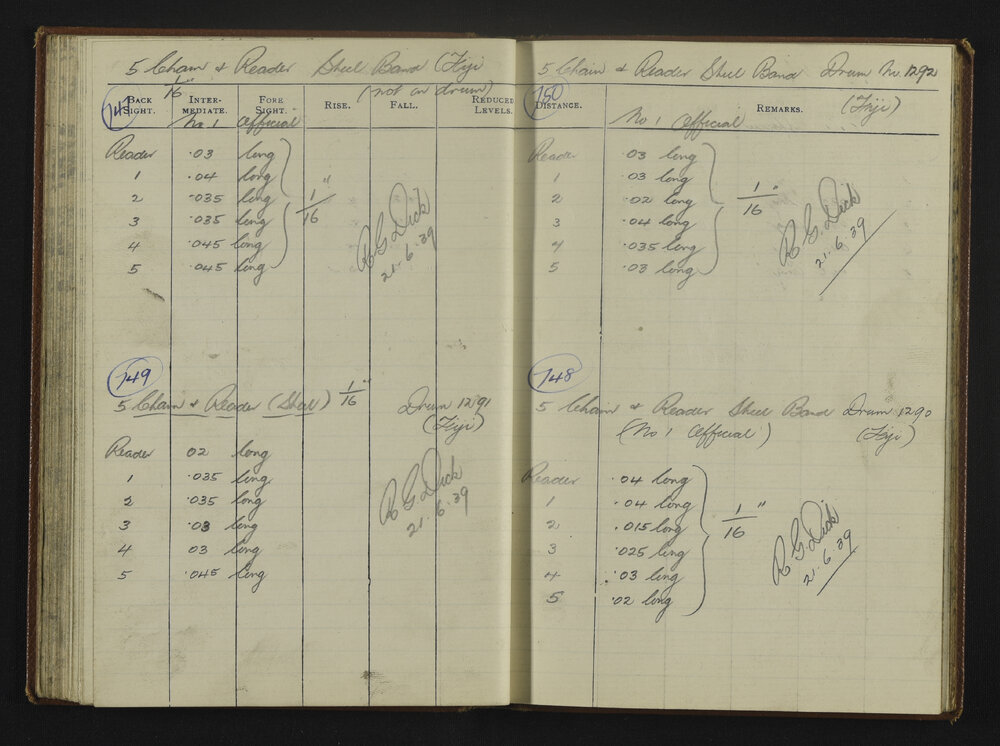 5 Chain & Reader Steel Band (Fiji
1/16" (not on drum)
147
BACK SIGHT. INTER-MEDIATE. FORE SIGHT. RISE. FALL. REDUCED LEVELS.
No 1 Official
Reader .03 long
1 .04 long
2 .035 long
3 .035 long
4 .045 long
5 .045 long
1/16"
R G Dick
21.6.39
149
5 Chain & Reader (Steel) 1/16" Drum 1291
(Fiji)
Reader 02 long
1 .035 long
2 .035 long
3 .03 long
4 03 long
5 .045 long
R G Dick
21.6.39
5 Chain & Reader Steel Band Drum No. 1292
150
DISTANCE. REMARKS. (Fiji)
No 1 Official
Reader .03 long
1 .03 long
2 .02 long
3 .04 long
4 .035 long
5 .03 long
1/16"
R G. Dick
21.6.39
148
5 Chain & Reader Steel Band Drum 1290
(No 1 Official) (Fiji)
Reader .04 long
1 .04 long
2 .015 long
3 .025 long
4 .03 long
5 .02 long
1/16"
R G Dick
21.6.39